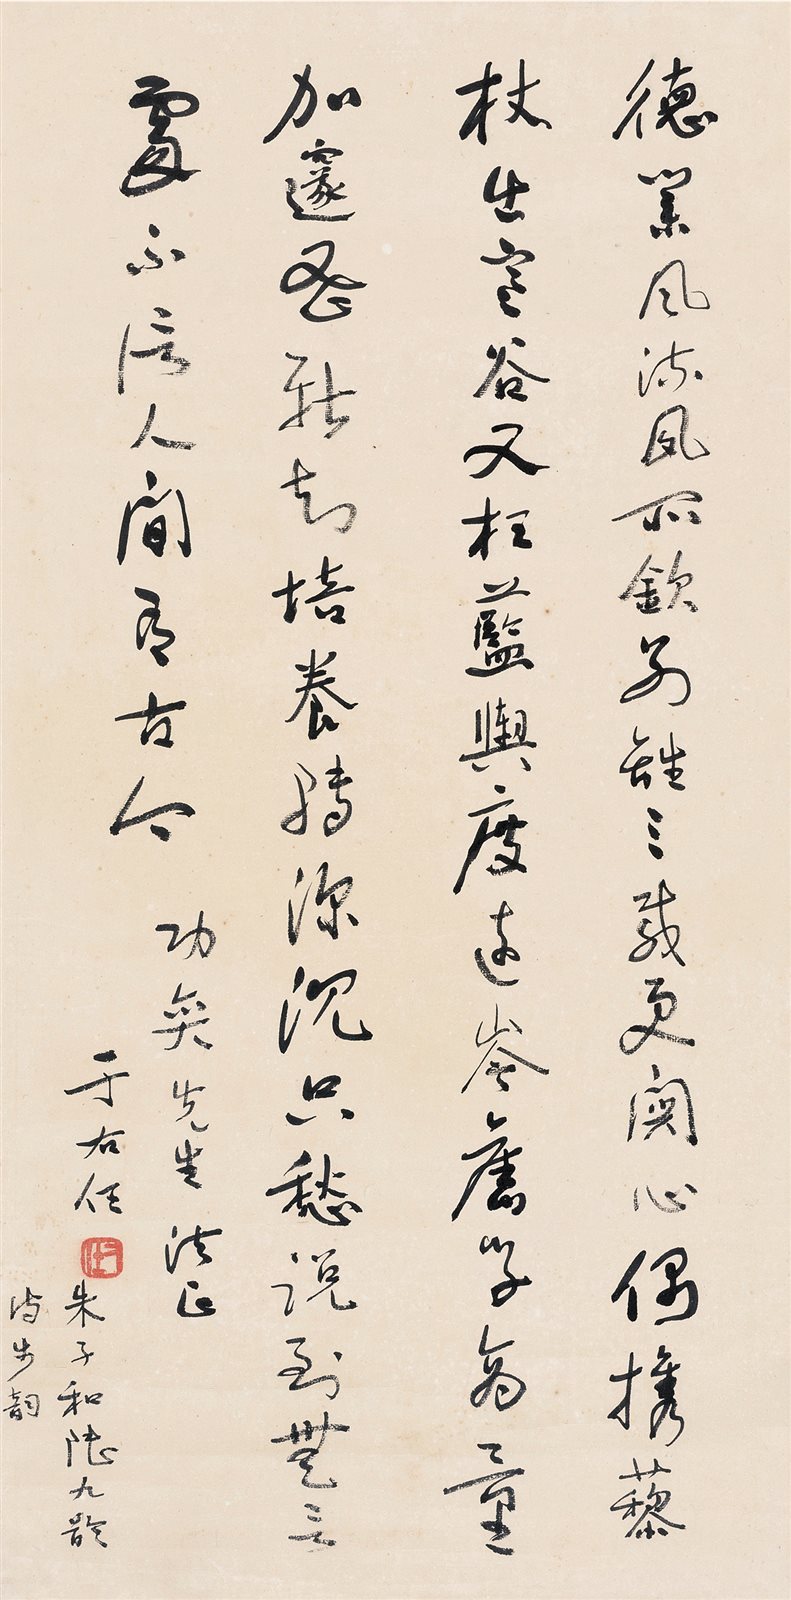 德業風流夙所欽別離三載更關心偶攜藜
杖出寒谷又枉藍輿度遠岑舊學商量
加邃密新知培養轉深沉只愁說到無言
處不信人間有古今
功奕先生法正
于右任
朱子和陸九齡
詩步韻